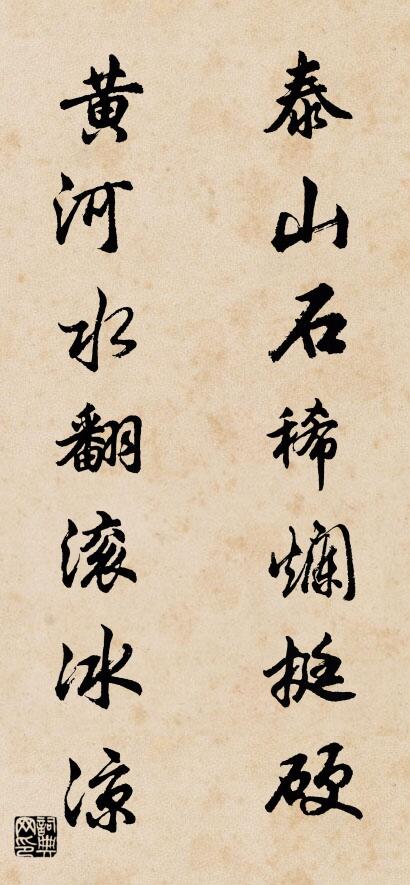 泰山石稀爛挺硬
黄河水翻滚冰凉
詞典网印